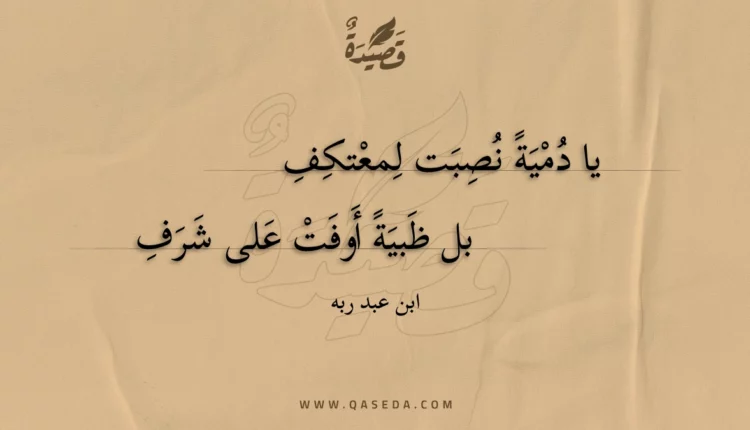 قَصِيْدَةٌ
يا دُمْيَةً نُصِبَت لِمعْتكِفِ
بل ظَبيَةً أَوفَتْ عَلى شَرَفِ
ابن عبد ربه
WWW.QASEDA.COM